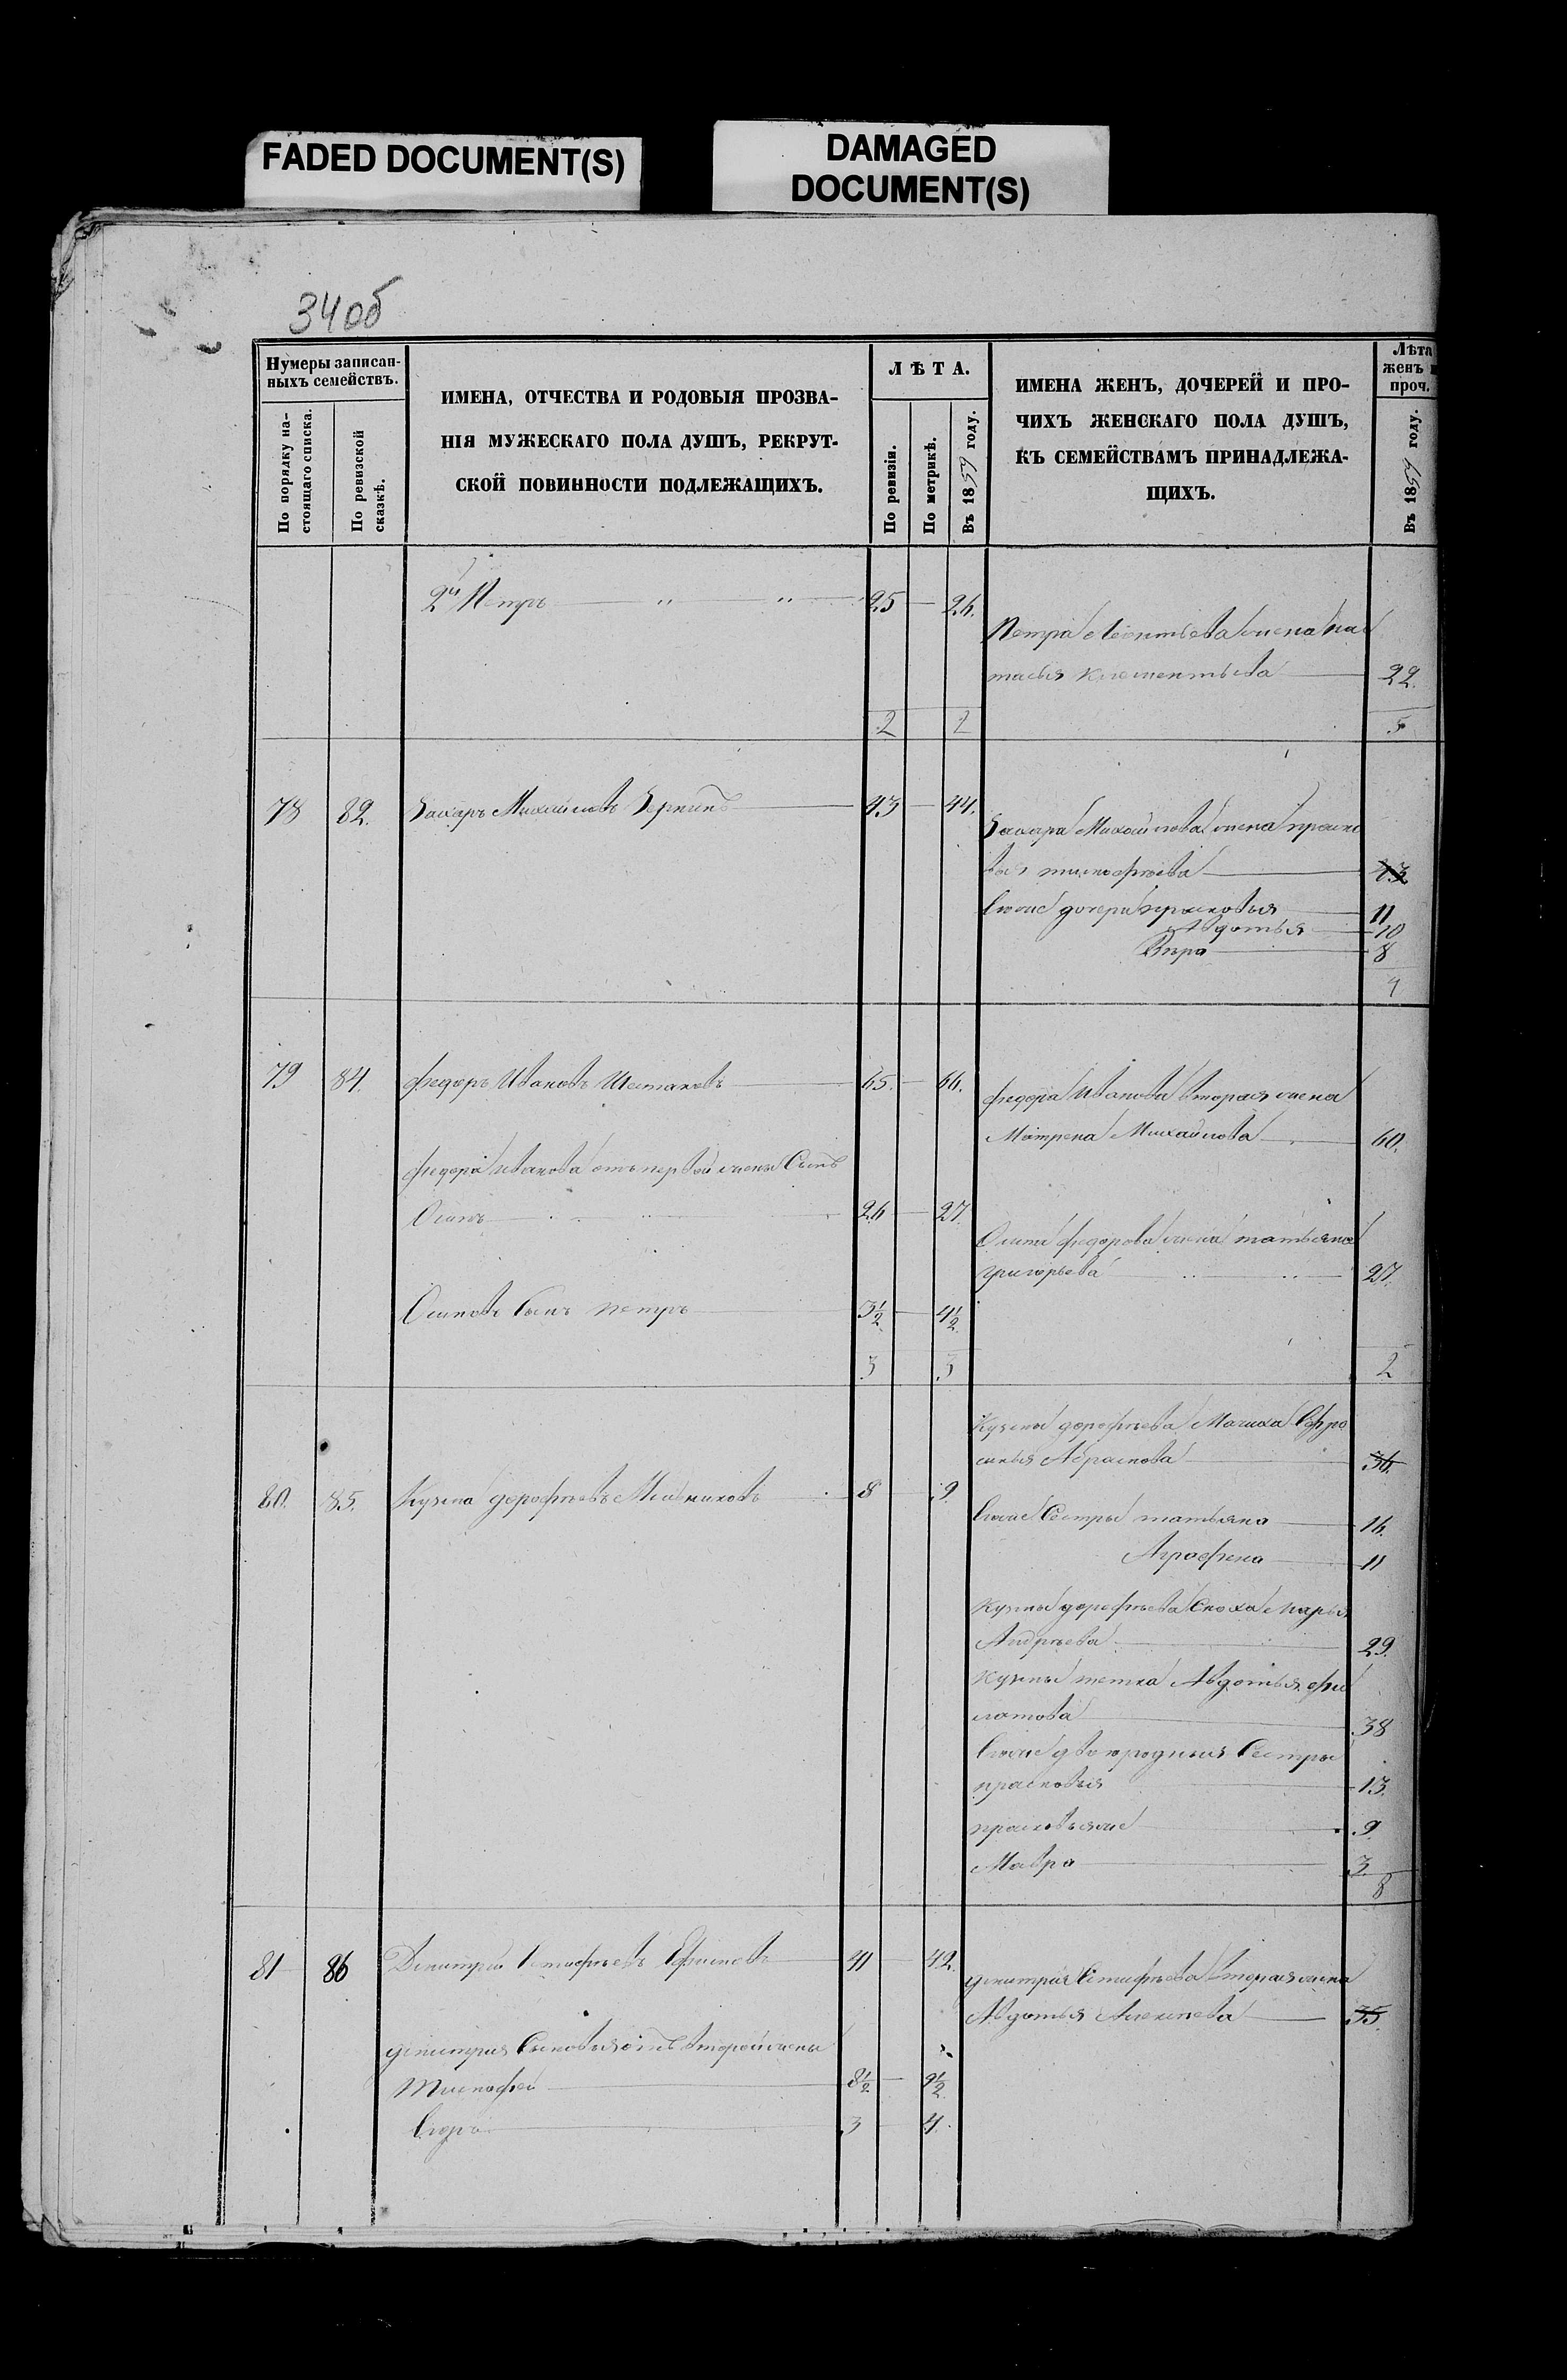 FADED DOCUMENT(S)
DAMAGED
DOCUMENT(S)
34 об
Нумеры записан-
ныхъ семействъ.
По порядку на-
стоящаго списка.
По ревизской
сказкѣ.
ИМЕНА, ОТЧЕСТВА И РОДОВЫЯ ПРОЗВА-
НІЯ МУЖЕСКАГО ПОЛА ДУШЪ, РЕКРУТ-
СКОЙ ПОВИННОСТИ ПОДЛЕЖАЩИХЪ.
ЛѢТА.
По ревизіи.
По метрикѣ.
Въ 1859 году.
ИМЕНА ЖЕНЪ, ДОЧЕРЕЙ И ПРО-
ЧИХЪ ЖЕНСКАГО ПОЛА ДУШЪ,
КЪ СЕМЕЙСТВАМЪ ПРИНАДЛЕЖА-
ЩИХЪ.
Лѣта
женъ и
проч.
Въ 1859 году.
2й Петръ — " — " — 25 — 26.
Петра Леонтьева жена Нас
тасья Клементьева — 22.
2 2 5
78 82. Захаръ Михайловъ — 43 — 44.
Захара Михайлова жена Праско
вья Тимофѣева — 43
Ихже дочери Прасковья — 11
Авдотья — 10
Вѣра — 8
4
79 84. Федоръ Ивановъ Шестаковъ — 65. — 66.
Федора Иванова вторая жена
Матрена Михайлова — 60.
Федора Иванова отъ первой жены Сынъ
Осипъ — 26 — 27.
Осипа Федорова жена Татьяна
Григорьева — 27.
Осиповъ Сынъ Петръ — 3½ — 4½
3 3 2
Кузмы Дорофѣева Мачиха Ефро
синья Абрамова — 36.
80. 85. Кузма Дорофѣевъ Мельниковъ — 8 9.
Ихже Сестры Татьяна — 16.
Аграфена — 11
Кузмы Дорофѣева Сноха Марья
Андрѣева — 29.
Кузмы тетка Авдотья Фи
латова — 38
Ихже двоюродныя Сестры
Прасковья — 13.
Прасковьяже — 9.
Мавра — 3.
8
81 86 Дмитрій Ефимовъ — 41 — 42.
Дмитрія вторая жена
Авдотья Алексѣева — 35.
Дмитрія Сыновья отъ второй жены
Тимофей — 8½ — 9½
3 4.